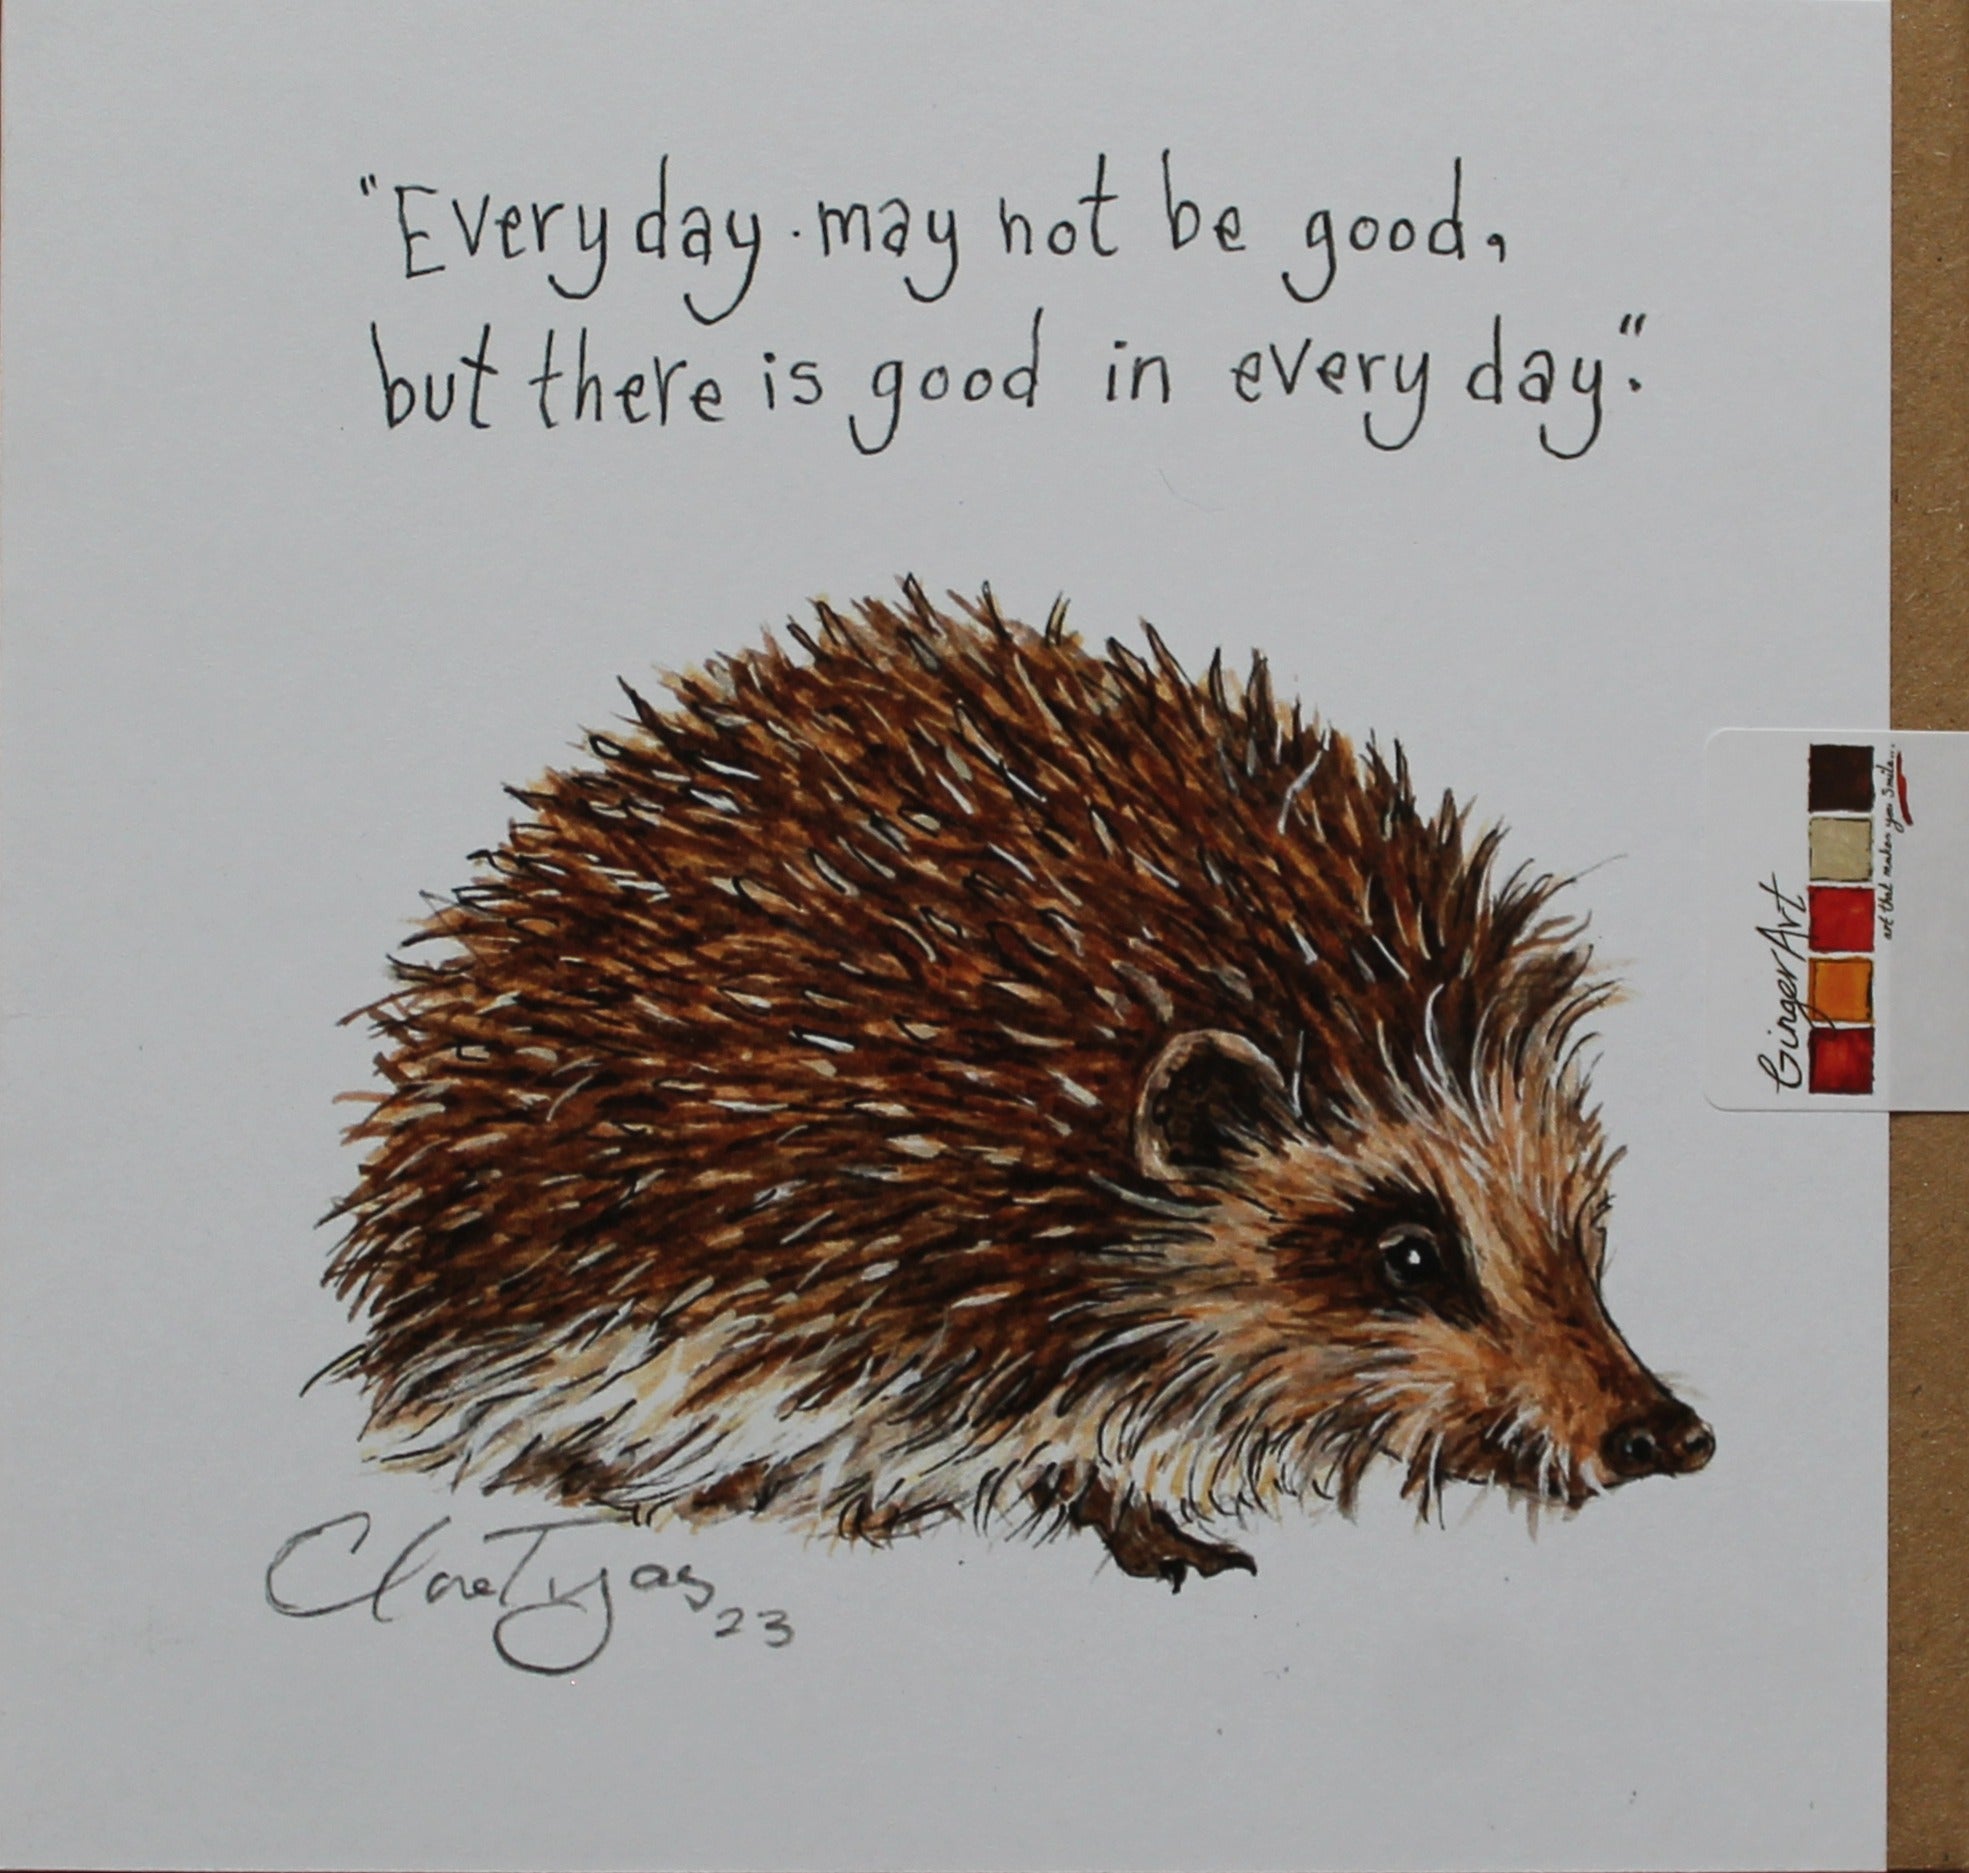 "Every day. may not be good,
but there is good in every day."
Clare Tyas 23
GingerArt
art that makes you smile...